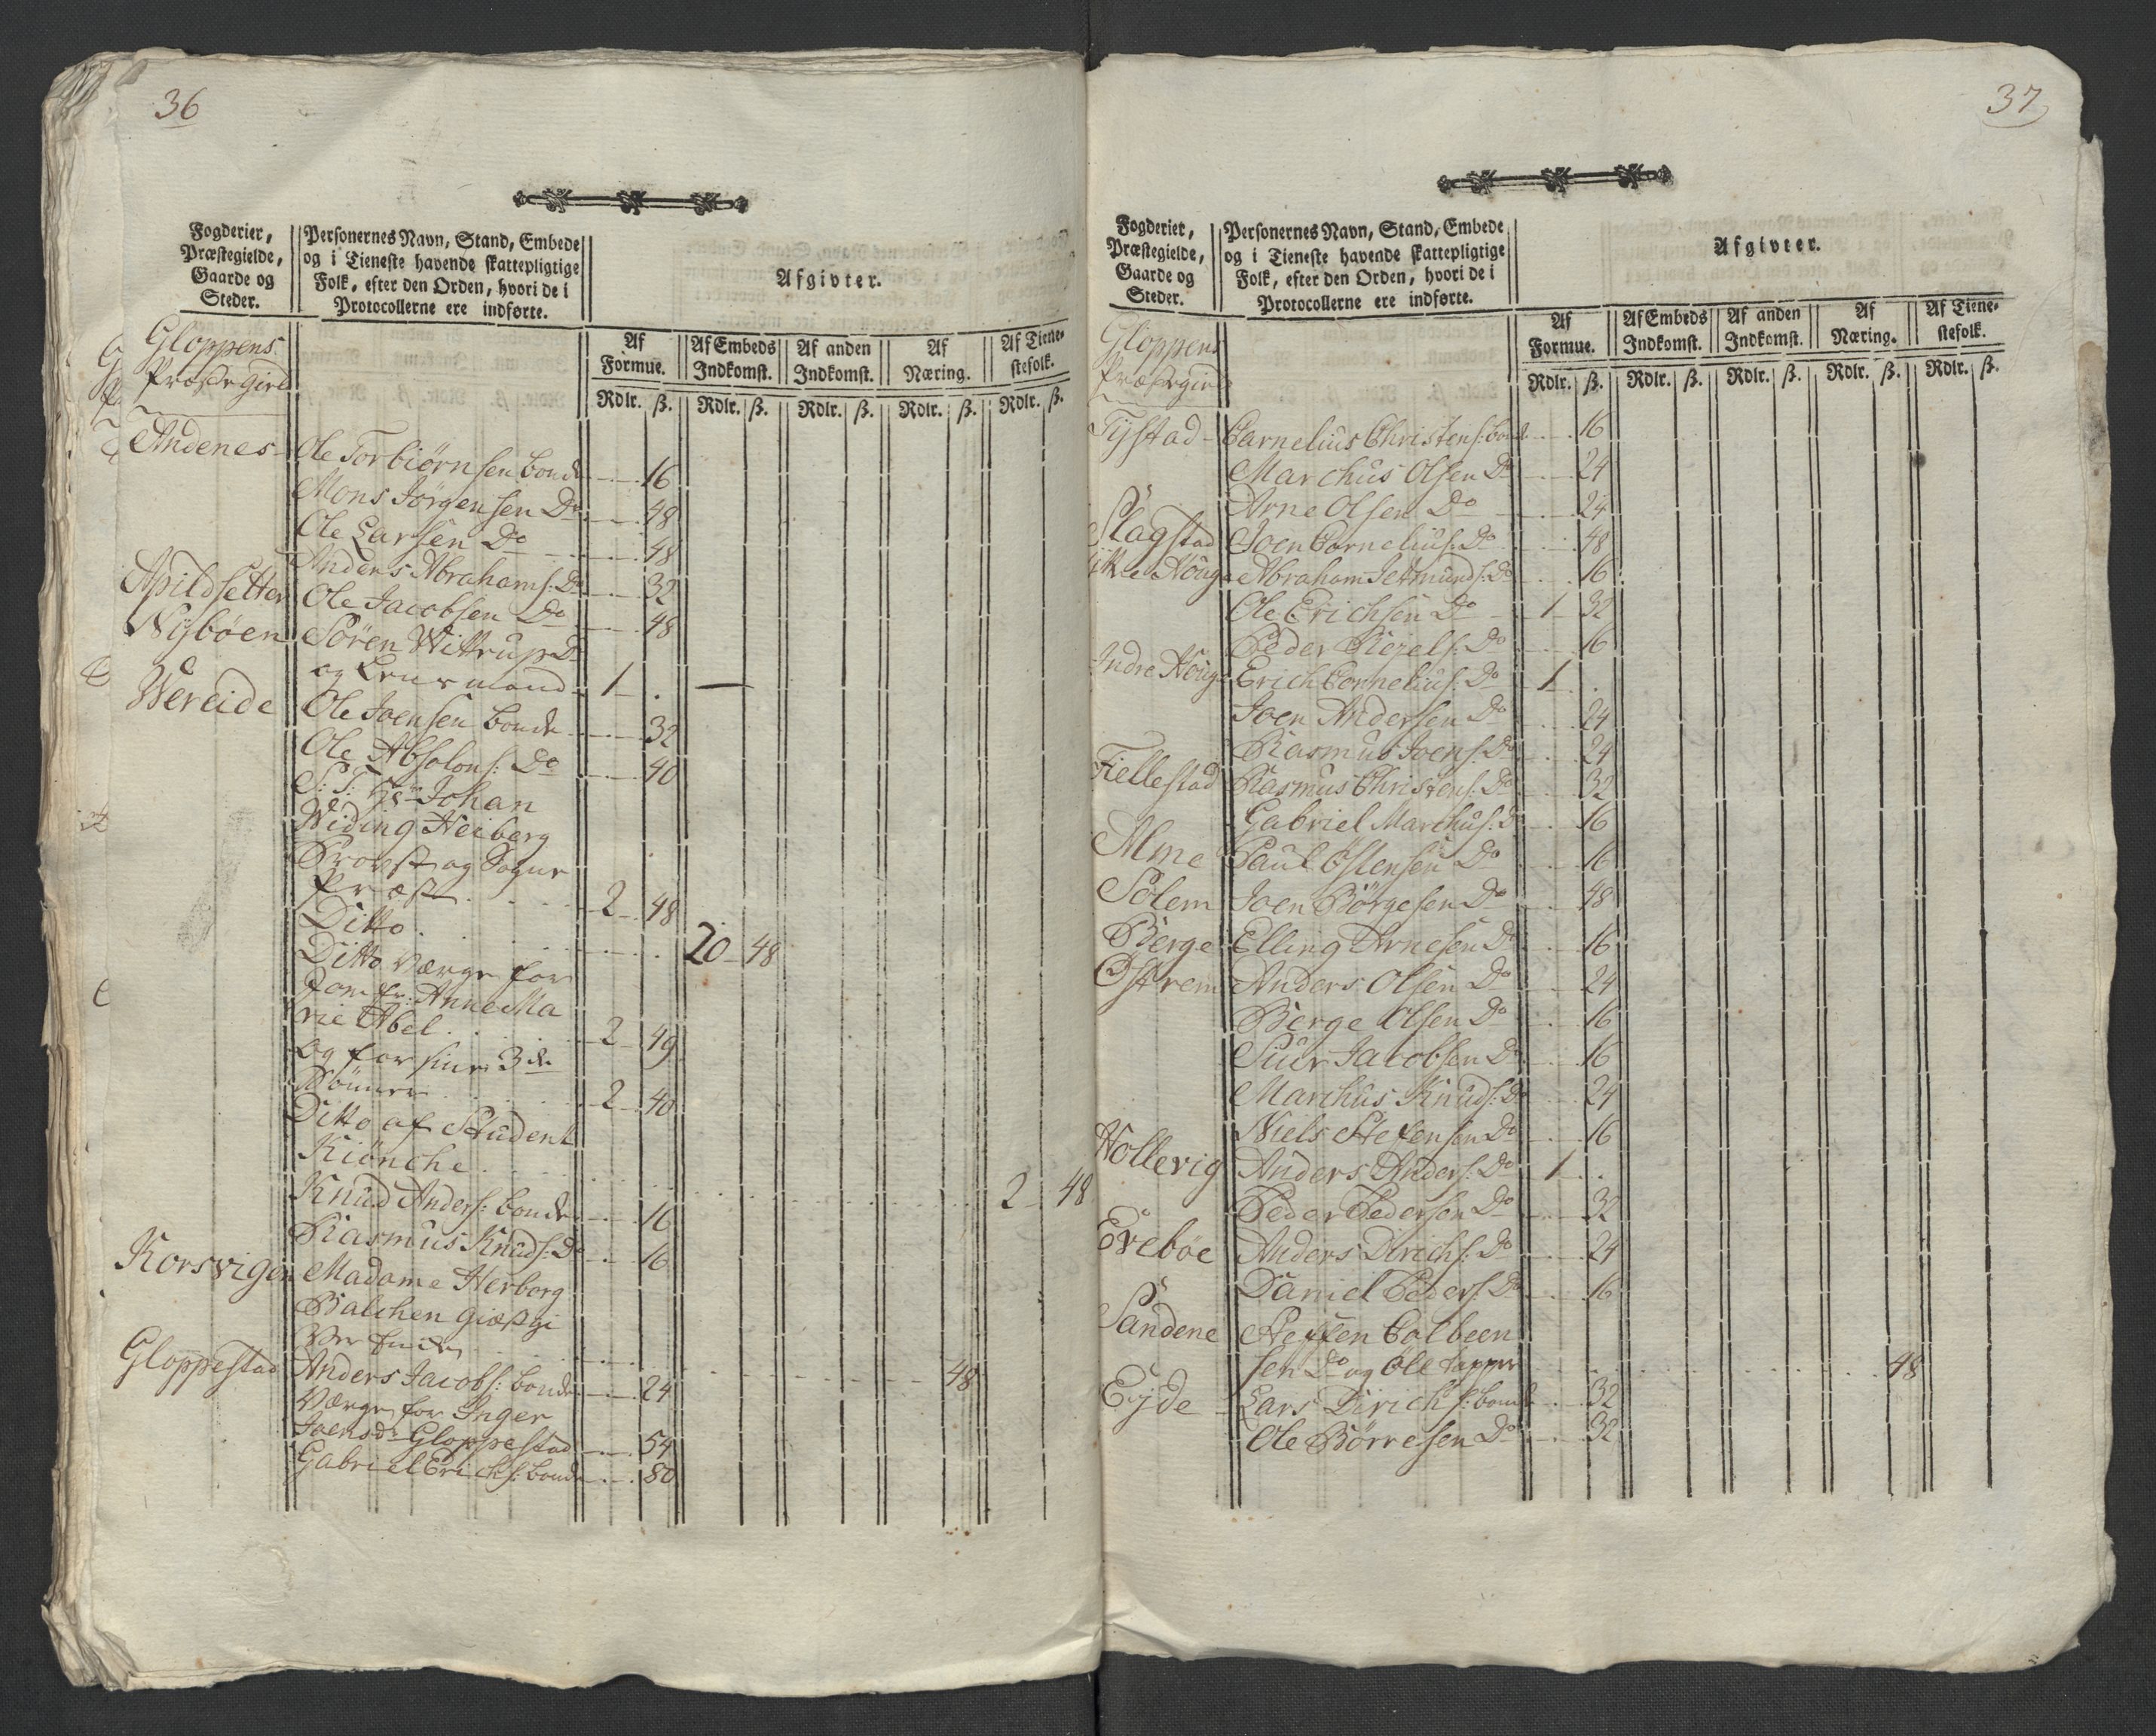 36
Fogderier,
Præstegielde,
Gaarde og
Steder.
Personernes Navn, Stand, Embede
og i Tieneste havende skattepligtige
Folk, efter den Orden, hvori de i
Protocollerne ere indførte.
Afgivter.
Af Formue. Af Embeds Indkomst. Af anden Indkomst. Af Næring. Af Tienestefolk.
Rdlr. ß. Rdlr. ß. Rdlr. ß. Rdlr. ß. Rdlr. ß.
Gloppens
Andenes Ole Torbiørnsen bonde 16
Mons Jørgensen Do 48
Ole Larsen Do 48
Anders Abrahams: Do 32
Apildsetter Ole Jacobsen Do 48
Nybøen Søren Wittrup Do
og Lensmand 1
Wereide Ole Joensen bonde 32
Ole Absolons: Do 40
S: T: Hr Johan
Widing Heiberg
Provst og Sogne
Præst 2 48
Ditto 20 48
Ditto Værge for
Jomfr: Anne Ma
rie Abel 2 49
og for sine 3de
Sønner 2 40
Ditto af Student
Kiønche 2 48
Knud Anders: bonde 16
Rasmus Knuds: Do 16
Korsvigen Madame Herborg
Balchen giæstgi
48
Gloppestad Anders Jacobs: bonde 24
Værge for Inger
Joensdr Gloppestad 54
Gabriel Erichs: bonde 80
37
Fogderier,
Præstegielde,
Gaarde og
Steder.
Personernes Navn, Stand, Embede
og i Tieneste havende skattepligtige
Folk, efter den Orden, hvori de i
Protocollerne ere indførte.
Afgivter.
Af Formue. Af Embeds Indkomst. Af anden Indkomst. Af Næring. Af Tienestefolk.
Rdlr. ß. Rdlr. ß. Rdlr. ß. Rdlr. ß. Rdlr. ß.
Gloppens
Tystad Carnelius Christens: bonde 16
Marchus Olsen Do 24
Arne Olsen Do 24
Slagstad Joen Cornelius: Do 48
Abraham Jetmunds: Do 16
Ole Erichsen Do 1 32
Peder Do 16
Indre Houge Erich Cornelius: Do 1
Joen Andersen Do 24
Rasmus Joens: Do 24
Fiellestad Rasmus Christens: Do 32
Gabriel Marchus: Do 16
Alme Paul Østensen Do 16
Solem Joen Børgesen Do 48
Berge Elling Arnesen Do 16
Østrem Anders Olsen Do 24
Berge Olsen Do 16
Siur Jacobsen Do 16
Marchus Knuds: Do 24
Niels Stefensen Do 16
Hollevig Anders Anders: Do 1
Peder Pedersen Do 32
Evebøe Anders Dirichs: Do 24
Daniel Peders: Do 16
Sandene Steffen Colbeen
sen Do og Øle tapper 48
Eyde Lars Dirichs: bonde 32
Ole Børresen Do 32